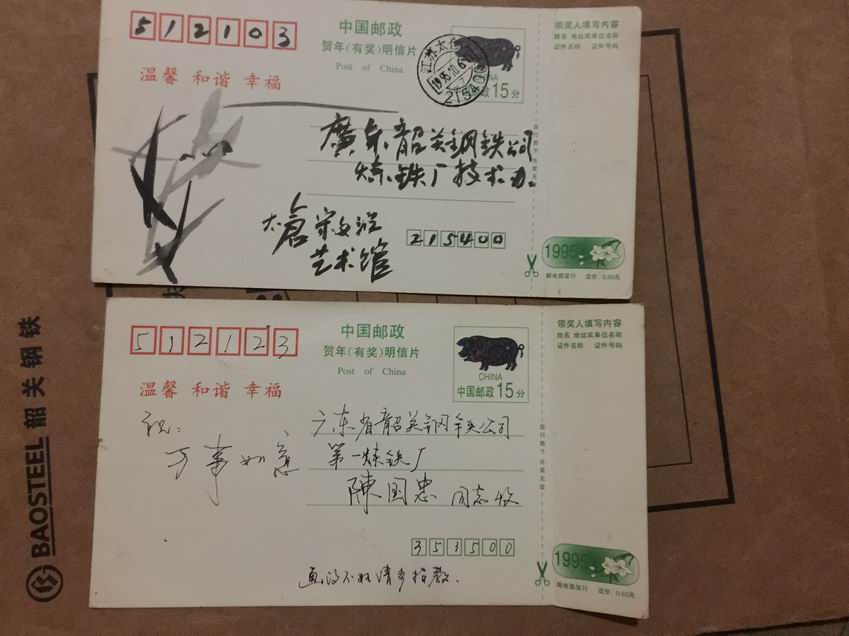 512103
中国邮政
贺年(有奖)明信片
Post of China
温馨 和谐 幸福
江苏太
1995.10.6
215400
CHINA
邮政15分
领奖人填写内容
姓名 地址或单位名称
证件名称 证件号码
廣东韶关钢铁公司
炼铁厂技术办
太倉宋文治
艺术馆
215400
1995
邮电部发行 定价:0.60元
512123
中国邮政
贺年(有奖)明信片
Post of China
温馨 和谐 幸福
CHINA
中国邮政15分
领奖人填写内容
姓名 地址或单位名称
证件名称 证件号码
祝:
万事如意
广东省韶关钢铁公司
第一炼铁厂
陳国忠 同志收
353500
画得不好请多指教.
1995
邮电部发行 定价:0.60元
BAOSTEEL 韶关钢铁